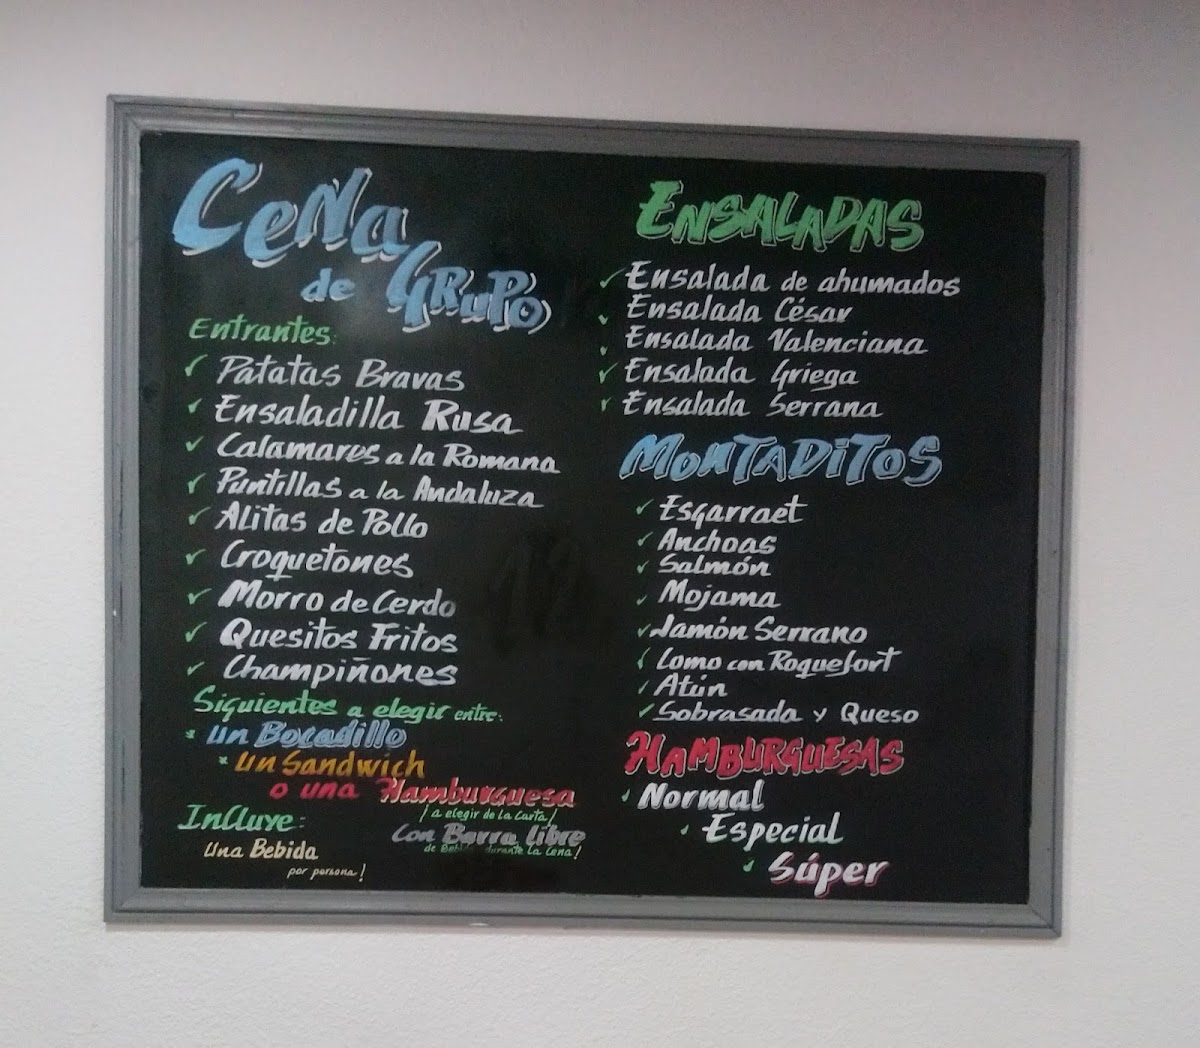 Cena
de Grupo
Entrantes:
Patatas Bravas
Ensaladilla Rusa
Calamares a la Romana
Puntillas a la Andaluza
Alitas de Pollo
Croquetones
Morro de Cerdo
Quesitos Fritos
Champiñones
Siguientes a elegir entre:
* un Bocadillo
* un Sandwich
o una Hamburguesa
(a elegir de la Carta)
Incluye:
Una Bebida
por persona!
Con Barra libre
de durante la Cena!
ENSALADAS
Ensalada de ahumados
Ensalada César
Ensalada Valenciana
Ensalada Griega
Ensalada Serrana
MONTADITOS
Esgarraet
Anchoas
Salmón
Mojama
Jamón Serrano
Lomo con Roquefort
Atún
Sobrasada y Queso
HAMBURGUESAS
Normal
Especial
Súper